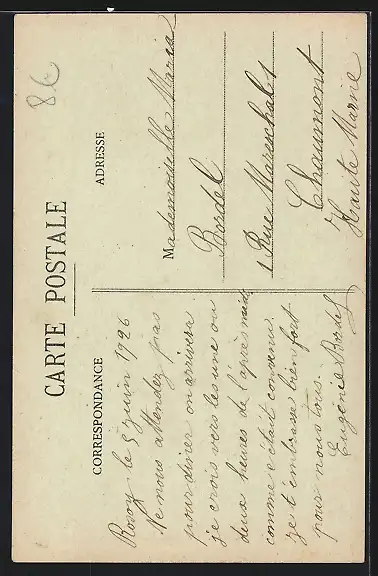 8€
CARTE POSTALE
CORRESPONDANCE
Rosoy le 5 juin 1926
Ne nous attendez pas
pour diner on arrivera
je crois vers les une ou
deux heures de l'après midi
comme c'était convenu.
je t'embrasse bien fort
pour nous tous.
Eugénie Bordel
ADRESSE
Mademoiselle Maria
Bordel
1 Rue Mareschal
Chaumont
Haute Marne